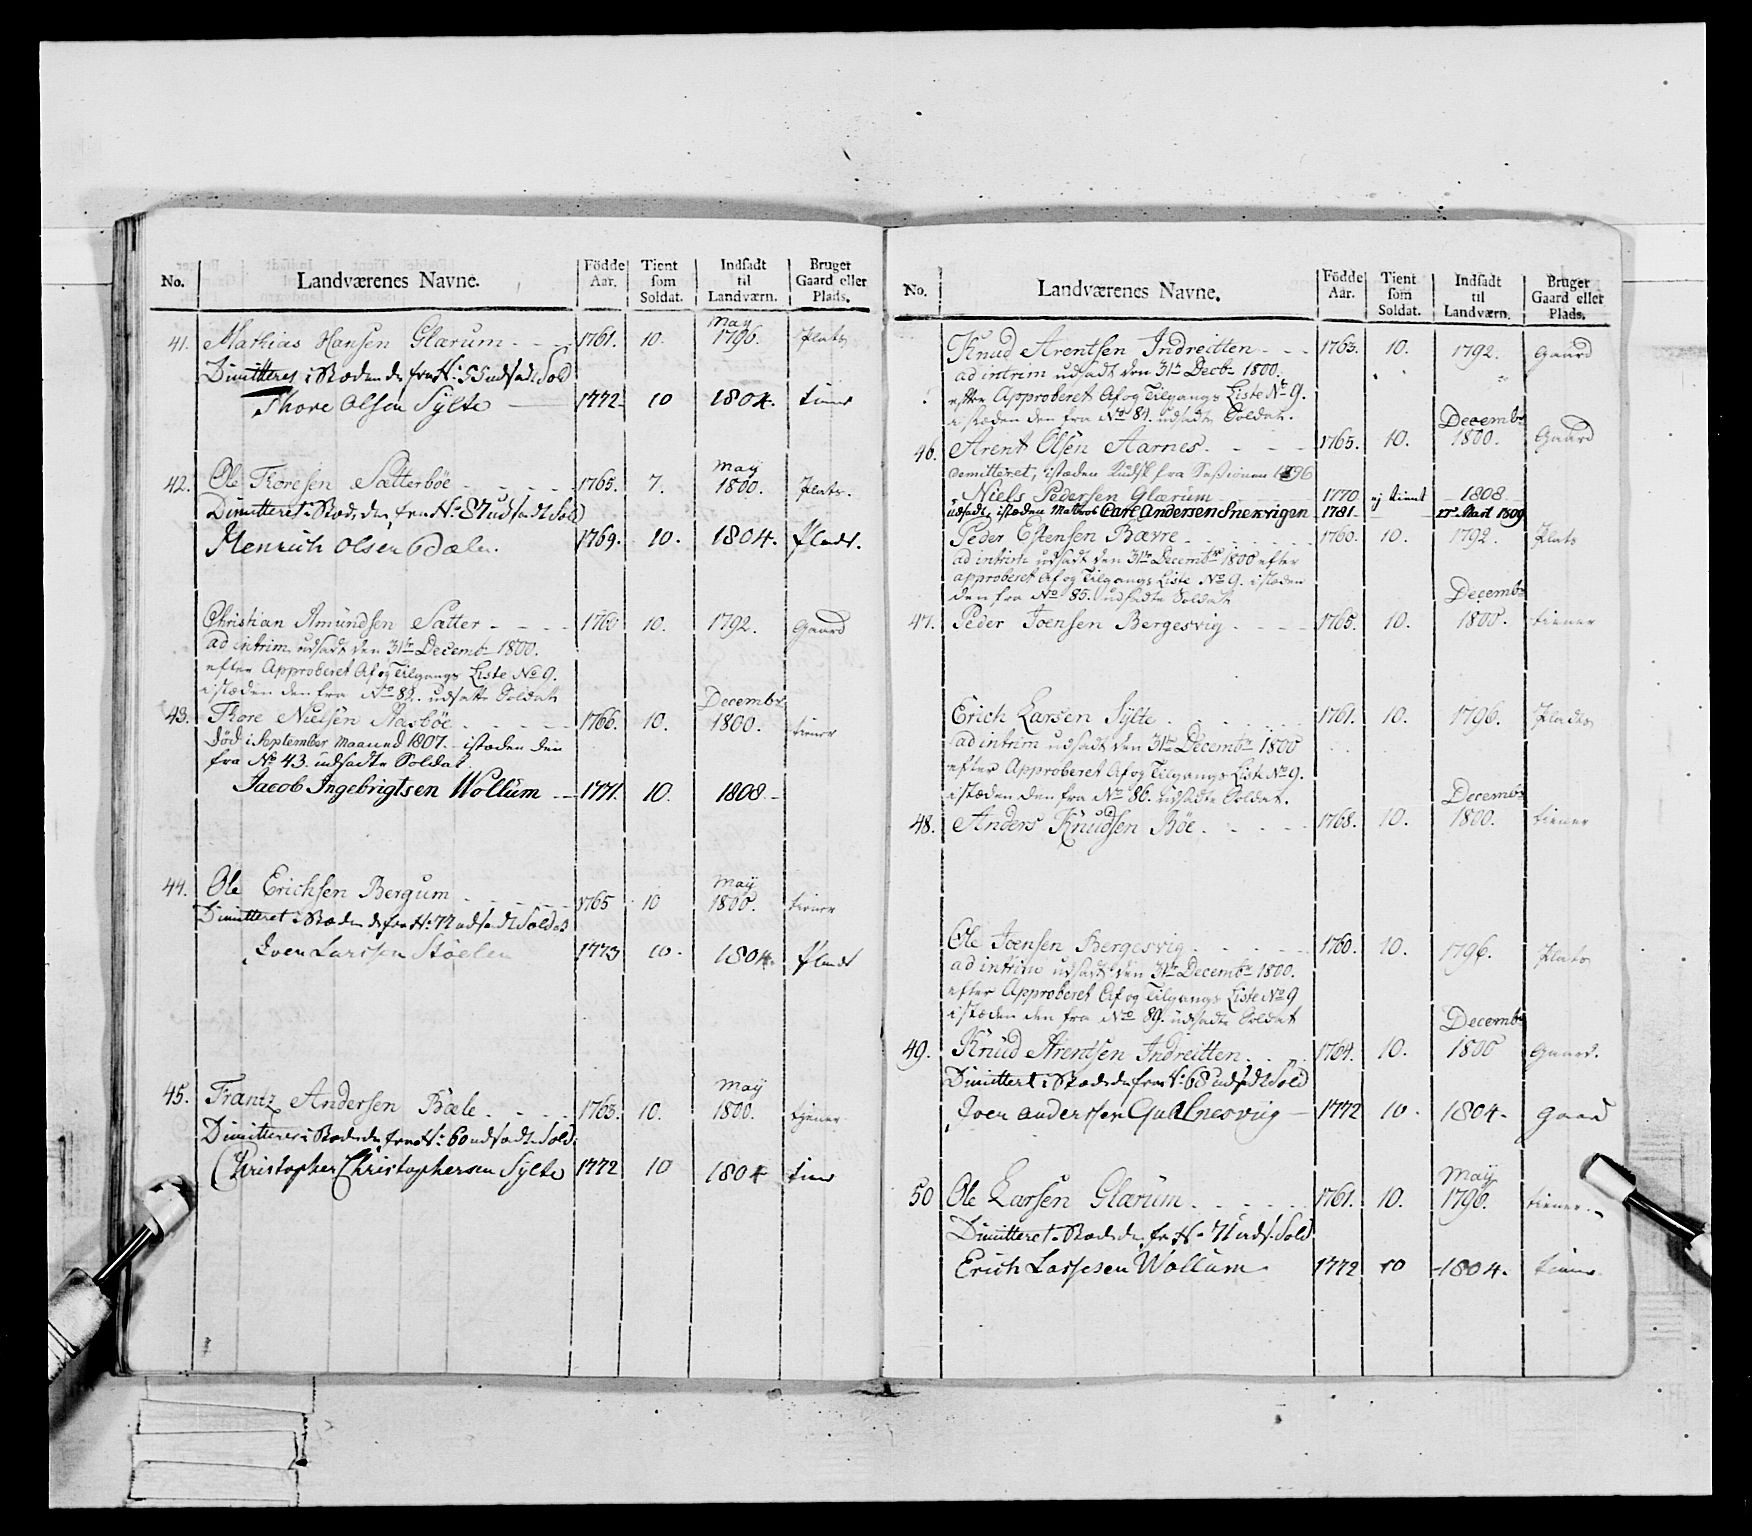 No. Landværenes Navne. Födde Aar. Tient som Soldat. Indsadt til Landværn. Bruger Gaard eller Plads.
May
41. Mathias Hansen Glærum 1761. 10. 1796. Plads
Dimitteret i Stæden de fra No: 55 udsadte Sold
Thore Olsen Sylte 1772 10 1804. tiener
May
42. Ole Thoresen Sætterböe 1765. 7. 1800. Plads.
Dimitteret i Stæd. den fra No: 87 udsadte Sold
Henrich Olsen Bæle. 1769. 10. 1804. Plads.
Christian Amundsen Satter 1760 10. 1792. Gaard
ad intrim udsadt den 31te Decembr 1800.
efter Approberet Af og Tilgangs Liste No 9.
istæden den fra No 82. udsatte Soldat
Decembr
43. Thore Nielsen Aasböe 1766. 10. 1800. tiener
död i September Maaned 1807. istæden den
fra No 43. udsadte Soldat
Jacob Ingebrigtsen Wollum 1771. 10. 1808.
May
44. Ole Erichsen Bergum 1765 10 1800. tiener
Dimitteret i Stæden de fra No: 72 udsadte Soldat
Iver Larssen Stöelen 1773 10. 1804. Plads
May
45. Frantz Andersen Bæle 1763. 10. 1800. tjener
Dimitteret i Stæden de fra No: 60 udsadte Sold:
Christopher Christophersen Sylte 1772 10 1804 tiener
No. Landværenes Navne. Födde Aar. Tient som Soldat. Indsadt til Landværn. Bruger Gaard eller Plads.
Knud Arentsen Indreitten 1763. 10. 1792. Gaard
ad intrim udsadt den 31te Decbr 1800.
efter Approberet Af og Tilgangs Liste No 9.
istæden den fra No 84. udsadte Soldat.
Decembr
46. Arent Olsen Aarnes. 1765. 10. 1800. Gaard
Demitteret, istæden Indsk fra Sessionen
Niels Pedersen Glærum 1770 ej tient 1808
udsadt, istæden Matros Carl Andersen Snekvigen 1781. Mart 1809
Peder Estensen Bævre 1760. 10. 1792. Plads
ad intrim udsadt den 31te Decembr 1800 efter
approberet Af og Tilgangs Liste No 9. istæden
den fra No 85. udsadte Soldat
Decembr
47. Peder Joensen Bergesvig 1765. 10. 1800. tiener
Erich Larsen Sylte 1761. 10. 1796. Plads
ad intrim udsadt den 31te Decembr 1800
efter Approberet Af og Tilgangs Liste No 9.
istæden den fra No 86. udsadte Soldat.
Decembr
48. Anders Knudsen Böe 1768. 10. 1800. tiener
Ole Joensen Bergesvig 1760. 10. 1796. Plads
ad intrim udsadt den 31te Decembr 1800.
efter Approberet Af og Tilgangs Liste No 9
istæden den fra No 89. udsadte Soldat
Decembr
49. Knud Arentsen Indreitten 1764. 10. 1800 Gaard.
Dimittert i Stæden de fra No: 68 udsadte Sold
Iver anderssen 1772 10. 1804. Gaard
May
50 Ole Larsen Glærum 1761. 10. 1796. tiener
Dimitteret i Stæden de fra No 71 uds. Sold
Erich Larssen Wollum 1772 10 1804. tiener